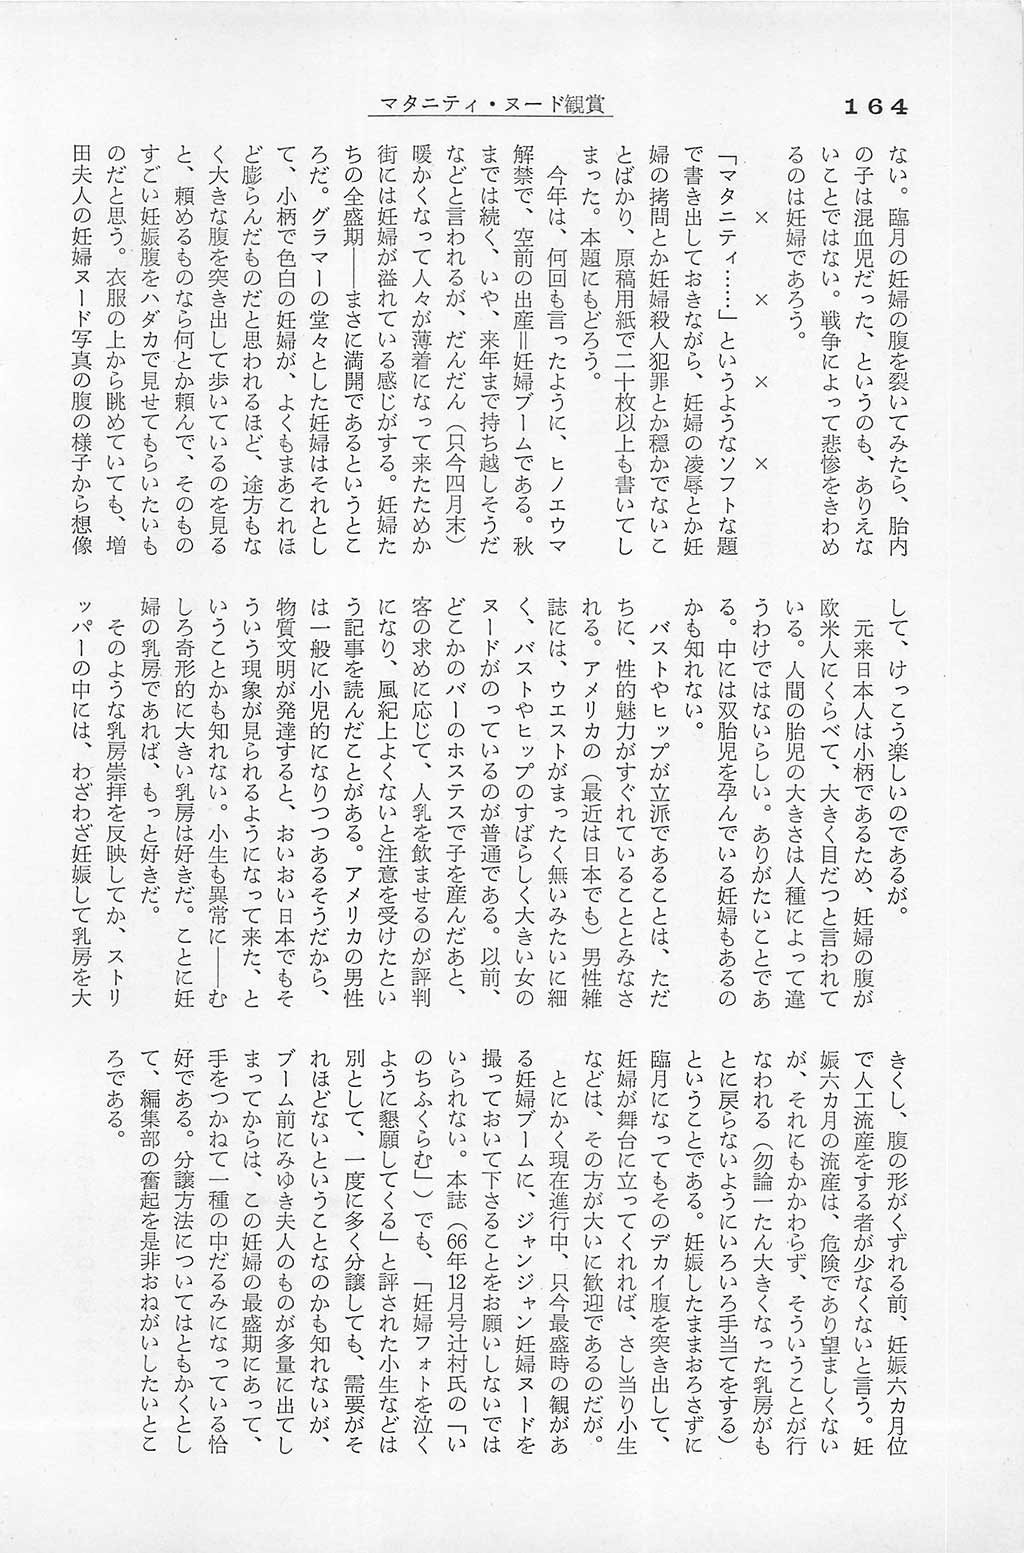 164
マタニティ・ヌード観賞
ない。臨月の妊婦の腹を裂いてみたら、胎内
の子は混血児だった、というのも、ありえな
いことではない。戦争によって悲惨をきわめ
るのは妊婦であろう。
× × × ×
「マタニティ……」というようなソフトな題
で書き出しておきながら、妊婦の凌辱とか妊
婦の拷問とか妊婦殺人犯罪とか穏かでないこ
とばかり、原稿用紙で二十枚以上も書いてし
まった。本題にもどろう。
今年は、何回も言ったように、ヒノエウマ
解禁で、空前の出産＝妊婦ブームである。秋
までは続く、いや、来年まで持ち越しそうだ
などと言われるが、だんだん（只今四月末）
暖かくなって人々が薄着になって来たためか
街には妊婦が溢れている感じがする。妊婦た
ちの全盛期――まさに満開であるというとこ
ろだ。グラマーの堂々とした妊婦はそれとし
て、小柄で色白の妊婦が、よくもまあこれほ
ど膨らんだものだと思われるほど、途方もな
く大きな腹を突き出して歩いているのを見る
と、頼めるものなら何とか頼んで、そのもの
すごい妊娠腹をハダカで見せてもらいたいも
のだと思う。衣服の上から眺めていても、増
田夫人の妊婦ヌード写真の腹の様子から想像
して、けっこう楽しいのであるが。
元来日本人は小柄であるため、妊婦の腹が
欧米人にくらべて、大きく目だつと言われて
いる。人間の胎児の大きさは人種によって違
うわけではないらしい。ありがたいことであ
る。中には双胎児を孕んでいる妊婦もあるの
かも知れない。
バストやヒップが立派であることは、ただ
ちに、性的魅力がすぐれていることとみなさ
れる。アメリカの（最近は日本でも）男性雑
誌には、ウエストがまったく無いみたいに細
く、バストやヒップのすばらしく大きい女の
ヌードがのっているのが普通である。以前、
どこかのバーのホステスで子を産んだあと、
客の求めに応じて、人乳を飲ませるのが評判
になり、風紀上よくないと注意を受けたとい
う記事を読んだことがある。アメリカの男性
は一般に小児的になりつつあるそうだから、
物質文明が発達すると、おいおい日本でもそ
ういう現象が見られるようになって来た、と
いうことかも知れない。小生も異常に――む
しろ奇形的に大きい乳房は好きだ。ことに妊
婦の乳房であれば、もっと好きだ。
そのような乳房崇拝を反映してか、ストリ
ッパーの中には、わざわざ妊娠して乳房を大
きくし、腹の形がくずれる前、妊娠六カ月位
で人工流産をする者が少なくないと言う。妊
娠六カ月の流産は、危険であり望ましくない
が、それにもかかわらず、そういうことが行
なわれる（勿論一たん大きくなった乳房がも
とに戻らないようにいろいろ手当てをする）
ということである。妊娠したままおろさずに
臨月になってもそのデカイ腹を突き出して、
妊婦が舞台に立ってくれれば、さし当り小生
などは、その方が大いに歓迎であるのだが。
とにかく現在進行中、只今最盛時の観があ
る妊婦ブームに、ジャンジャン妊婦ヌードを
撮っておいて下さることをお願いしないでは
いられない。本誌（66年12月号辻村氏の「い
のちふくらむ」）でも、「妊婦フォトを泣く
ように懇願してくる」と評された小生などは
別として、一度に多く分譲しても、需要がそ
れほどないということなのかも知れないが、
ブーム前にみゆき夫人のものが多量に出てし
まってからは、この妊婦の最盛期にあって、
手をつかねて一種の中だるみになっている恰
好である。分譲方法についてはともかくとし
て、編集部の奮起を是非おねがいしたいとこ
ろである。